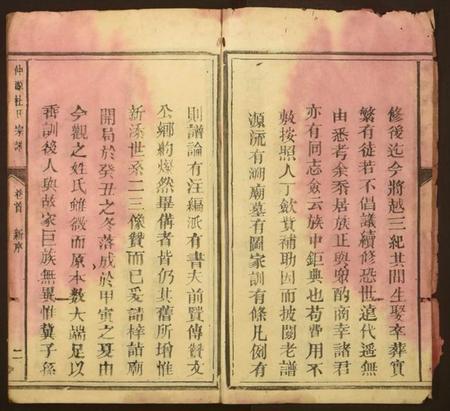 修後迄今將越三紀其間生娶卒葬實
繁有徒若不倡議續修恐世遠代遥無
由悉考余忝居族正與衆酌商幸諸君
亦有同志僉云族中鉅典也苟費用不
敷按照人丁歛貲補助因而披閱老譜
源流有溯廟墓有圖家訓有條凡例有
則譜論有注編派有書夫前賢傳贊文
公鄉約燦然畢備者皆仍其舊所增惟
新添世系二三像贊而已爰請梓詣廟
開局於癸丑之冬落成於甲寅之夏由
今觀之姓氏雖微而原本數大端足以
垂訓後人與故家巨族無異惟冀子孫
仲源杜氏宗譜
卷首
新序
二